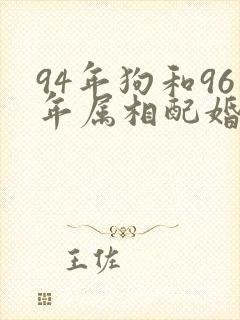 94年狗和96
年属相配婚
王佐